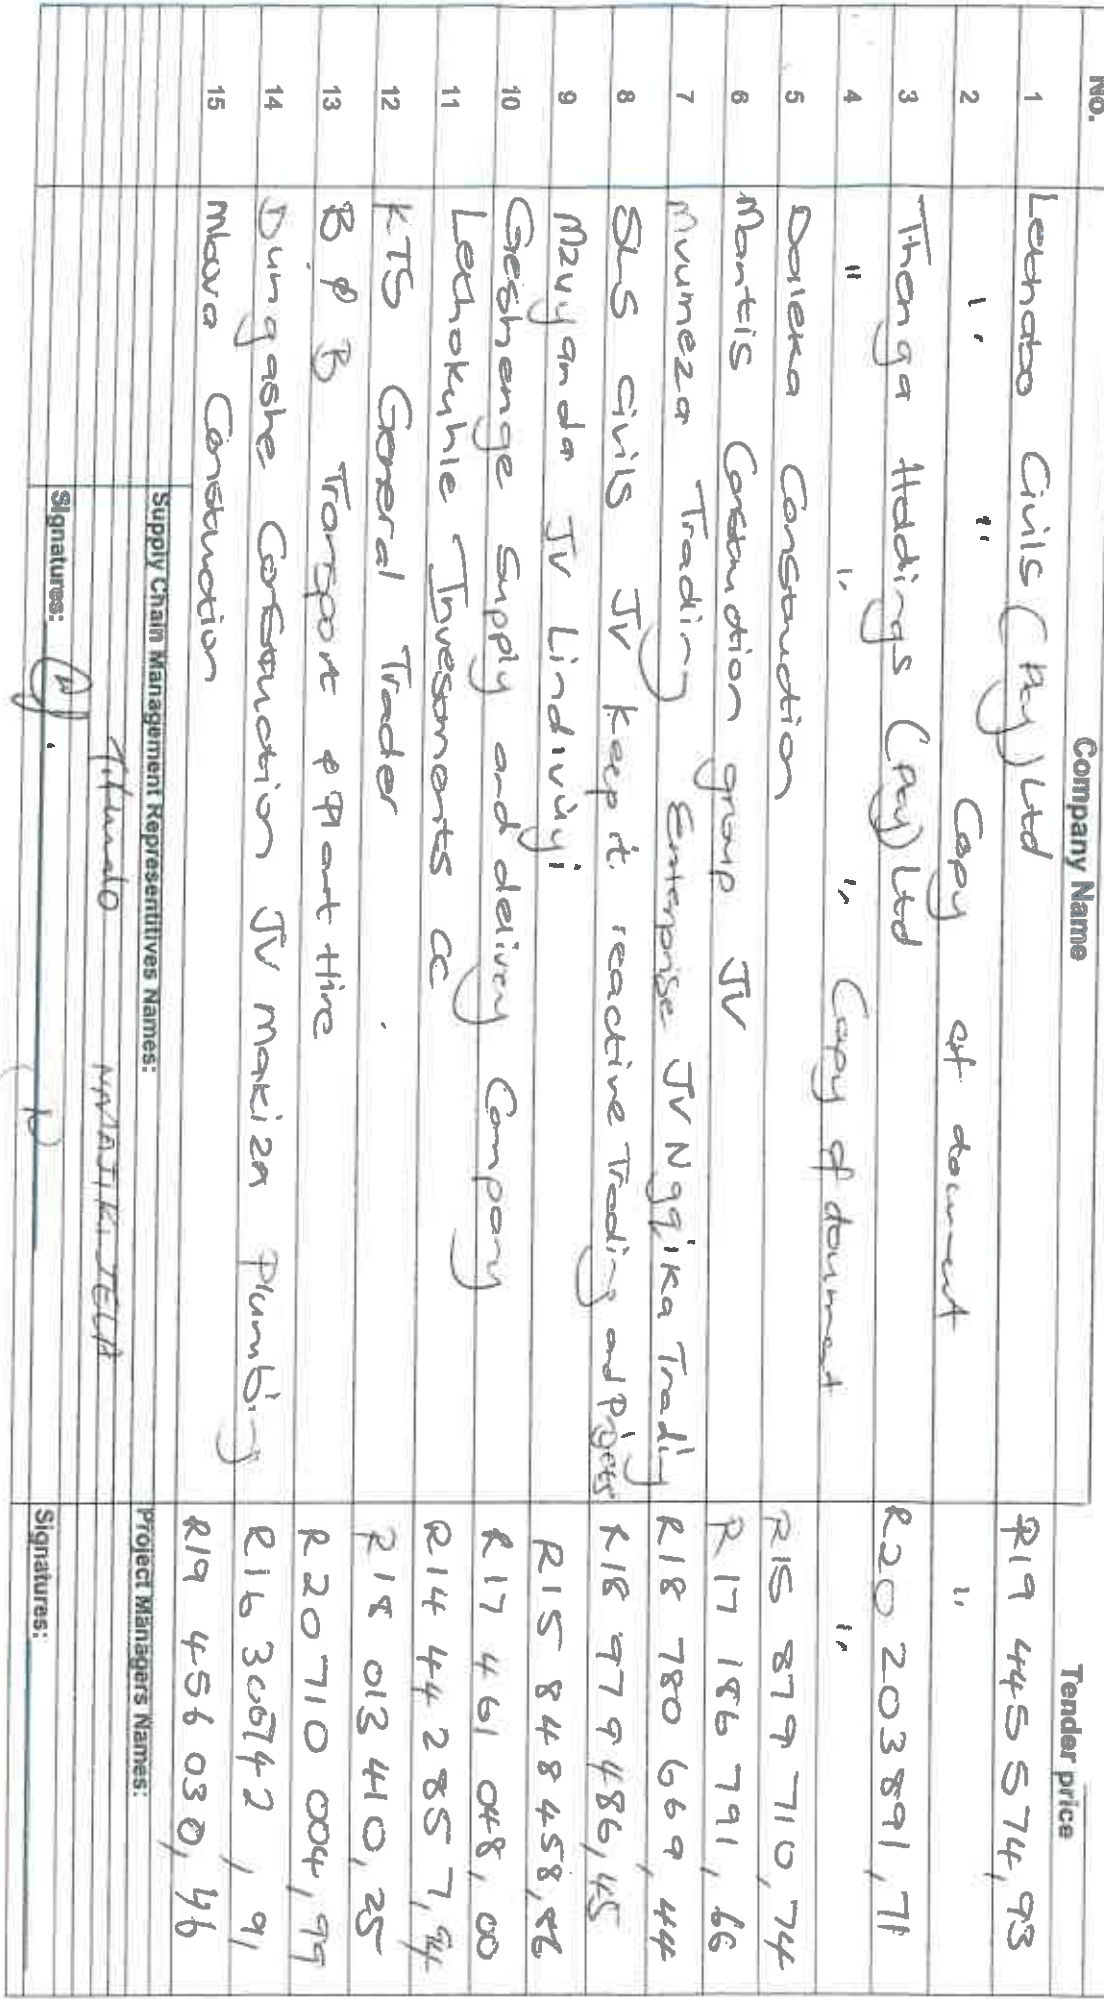 No. Company Name Tender price
1 Lethabo Civils (Pty) Ltd R19 445 574,93
2 " " Copy of document "
3 Thenga Holdings (Pty) Ltd R20 203 891,71
4 " " " Copy of document "
5 Daleka Construction R15 879 710,74
6 Mantis Construction group JV R 17 186 791,66
7 Mvumeza Trading Enterprise JV Ngqika Trading R18 780 669,44
8 SLS Civils JV keep it reactive Trading and Projects R18 979 486,45
9 Mzuyanda JV Lindivuyi R15 848 458,86
10 Geshenge Supply and delivery Company R17 461 048,00
11 Lethokuhle Investments cc R14 442 857,94
12 KTS General Trader R18 013 410,25
13 B & B Transport & Plant Hire R20 710 004,99
14 Dungashe Construction JV Makiza Plumbing R16 300742,91
15 Mbova Construction R19 456 030,46
Supply Chain Management Representitives Names: Project Managers Names:
Signatures: Signatures: